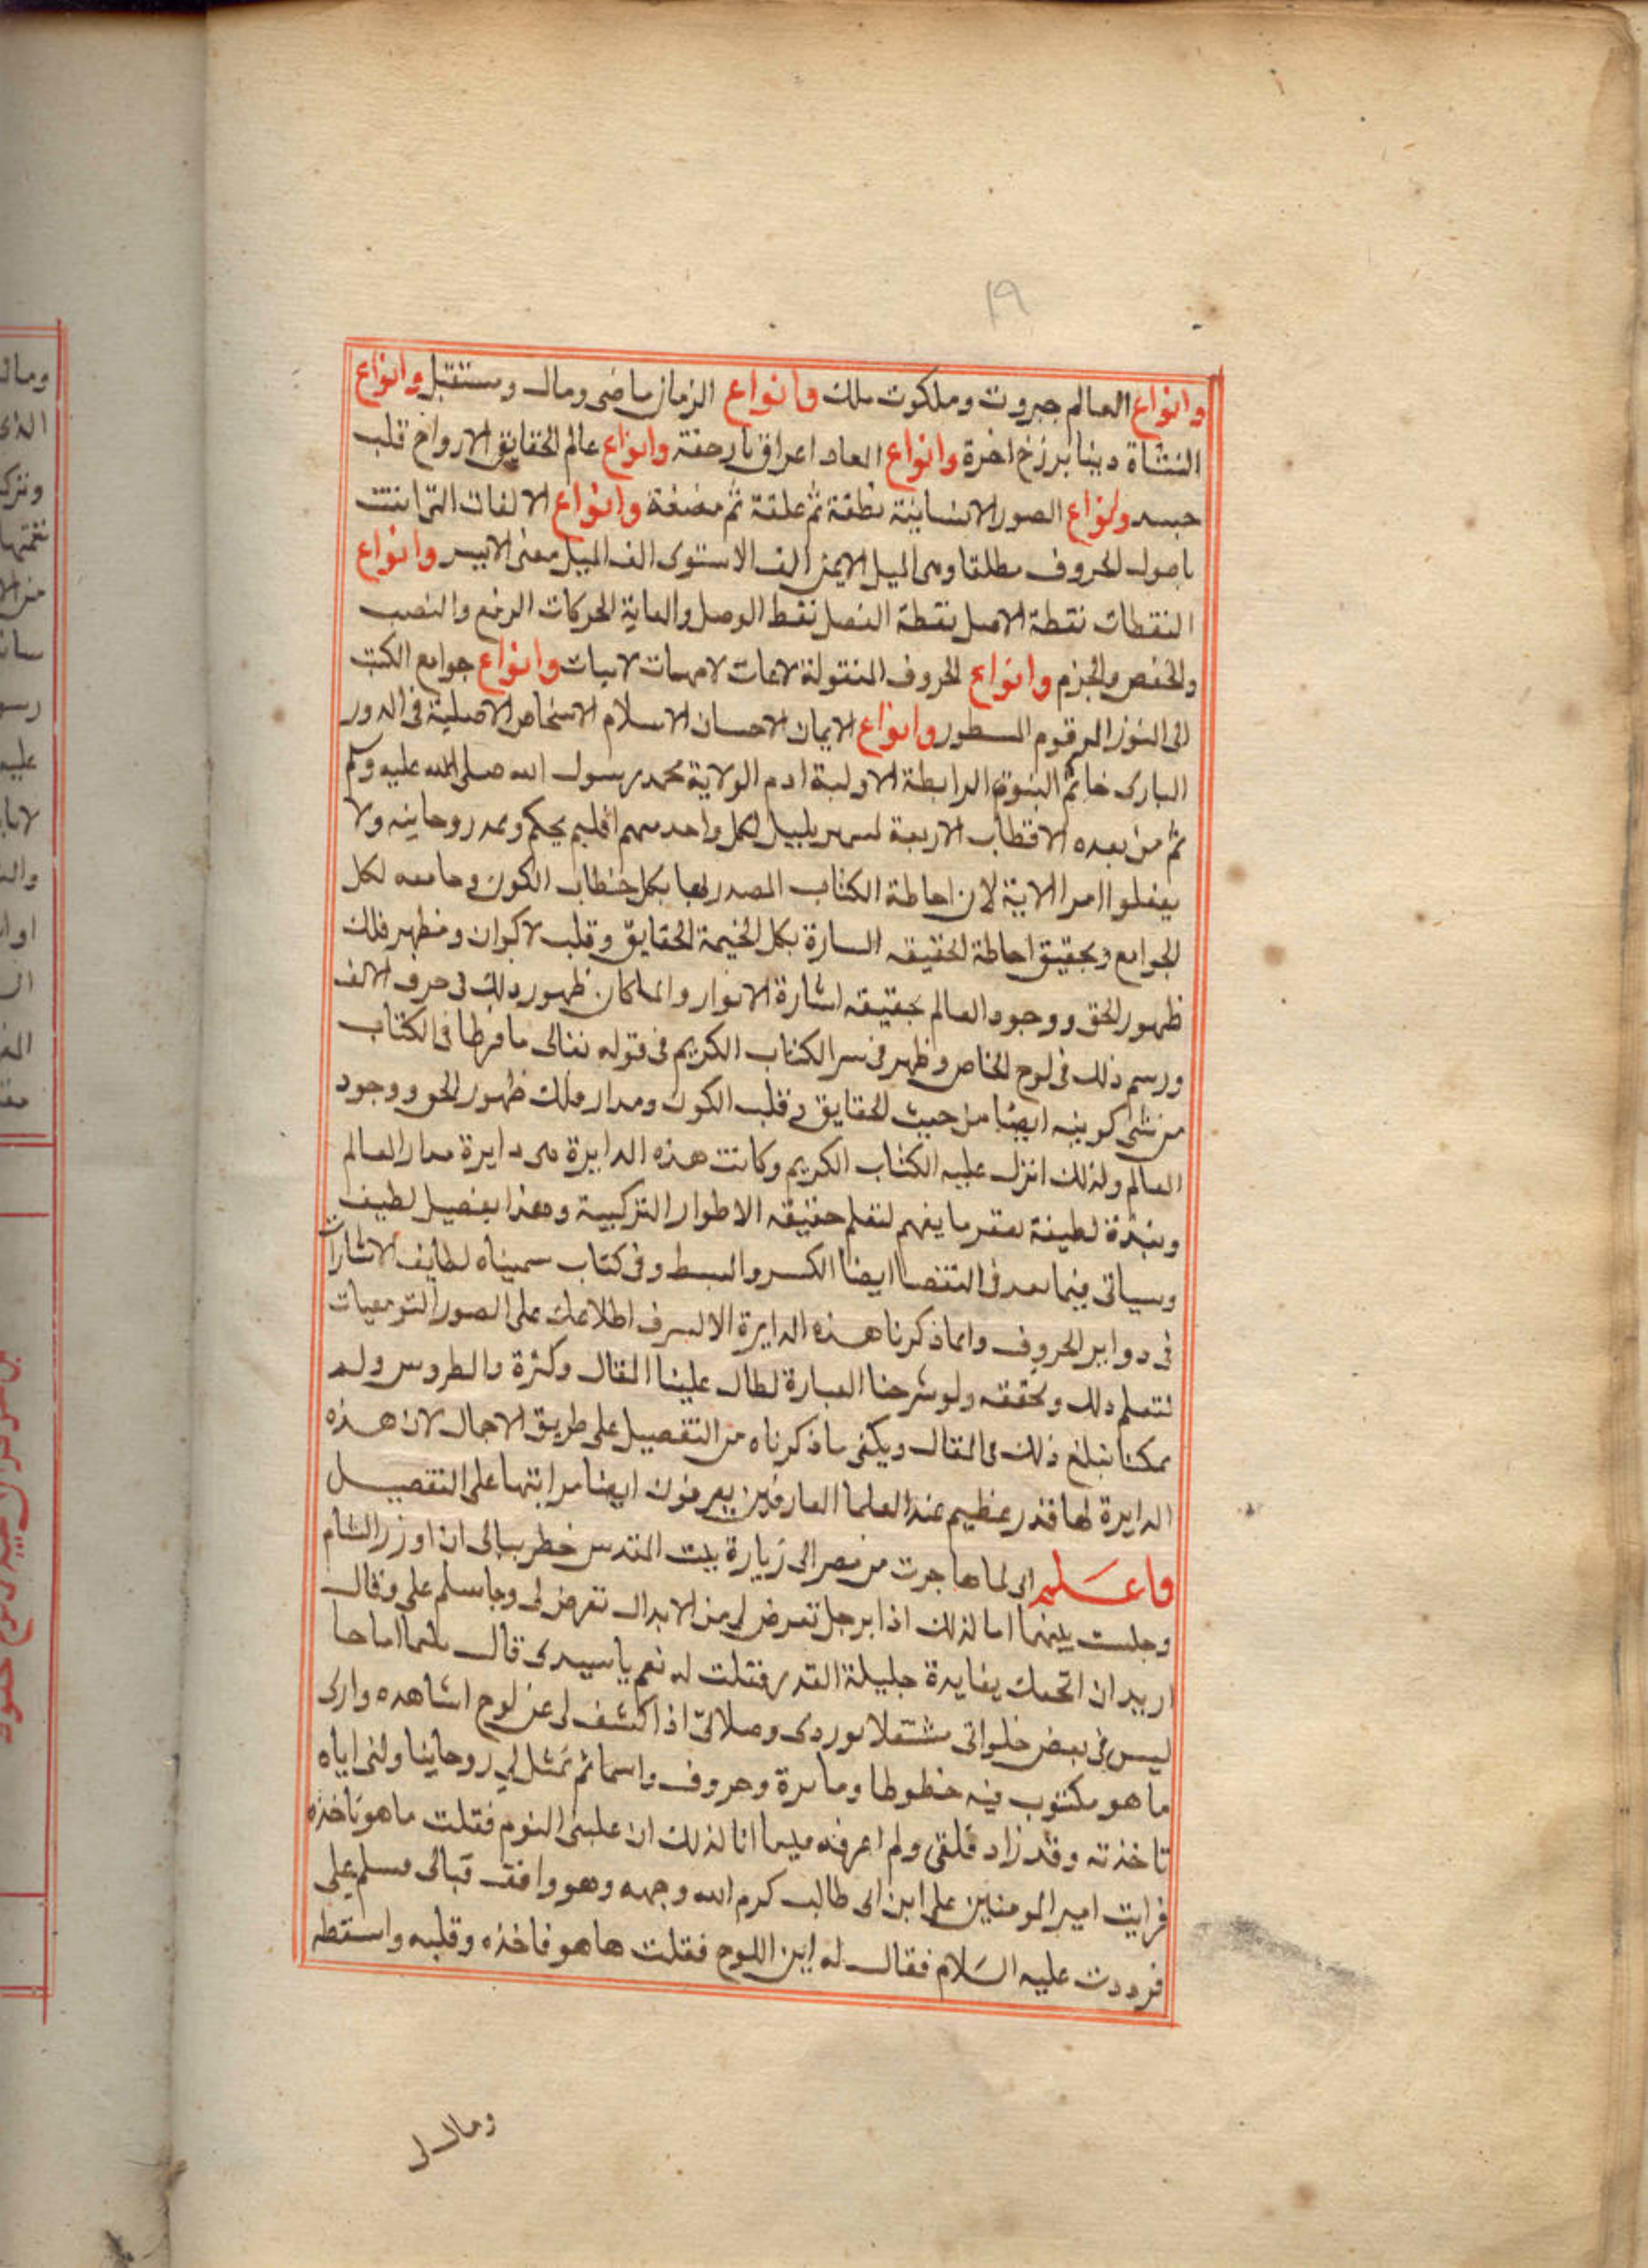 ١٩
وانواع العالم جبروت وملكوت ملك وانواع الزمان ماضى وحال ومستقبل وانواع
النشاة دينا برزخ اخرة وانواع العاد اعراق نار جنة وانواع عالم الحقايق الارواح قلب
جسد وانواع الصور الانسانية نطفة ثم علقة ثم مضغة وانواع الالفات التى انتت
باصول الحروف مطلقا وهى الميل الايمن الف الاستوى الف الميل معنى الايسر وانواع
النقطات نقطة الاصل نقطة الفصل نقط الوصل والغاية الحركات الرفع والنصب
والخفض والجزم وانواع الحروف المنقولة لامهات لابيات وانواع جوامع الكتب
الى النور المرقوم المسطور وانواع الايمان الاحسان الاسلام الاشخاص الاصلية فى الدور
البارى خاتم النبوة الرابطة الاولية ادم الولاية محمد رسول الله صلى الله عليه وسلم
ثم من بعده الاقطاب الاربعة لكل واحد منهم اقليم يحكم ومدد روحانيه ولا
يعقلوا امر الاية لان احاطة الكتاب المصدر بها بكل خطاب الكون وجامعه لكل
الجوامع وتحقيق احاطة الحقيقه السارة بكل الحقايق وقلب لاكوان ومظهر فلك
ظهور الحق ووجود العالم بحقيقه اشارة الانوار ولما كان ظهور ذلك فى حرف الالف
ورسم ذلك فى لوح الخاص وظهر فى سر الكتاب الكريم فى قوله تعالى ما فرطنا فى الكتاب
من شى كونيه ايضا من حيث الحقايق وقلب الكون ومدار فلك ظهور الحق ووجود
العالم ولذلك انزل عليه الكتاب الكريم وكانت هذه الدايرة هى دايرة مدار العالم
ونبذة لطيفة بقدر ما يفهم لتعلم حقيقه الاطوار التركيبية وهذا تفصيل لطيف
وسياتى فيما بعد فى التقصا ايضا الكسر والبسط وفى كتاب سميناه لطايف الاشارات
فى دواير الحروف وانما ذكرنا هذه الدايرة الا ليسرف اطلاعك على الصور
لتعلم ذلك وتحققه ولو شرحنا العبارة لطال علينا المقال وكثرة والطروس ولم
يمكنا نبلغ ذلك فى المقال ويكفى ما ذكرناه من التفصيل على طريق الاجمال لان هذه
الدايرة لها قدر عظيم عند العلما العارفين يعرفون ايضا مراتبها على التفصيل
فاعلم انى لما هاجرت من مصر الى زيارة بيت المقدس خطر ببالى ان ازور الشام
وجلت بينهما انا لذلك اذا برجل تعرض لى من الابدال تعرض لى وجا سلم على وقال
اريد ان اتحفك بفايدة جليلة القدر فقلت له نعم يا سيدى قال بينما انا جا
ليس فى بعض خلواتى مشتغلا بوردى وصلاتى اذ اكشف لى عن لوح اشاهده وارى
ما هو مكتوب فيه خطوطا ودايرة وحروف واسما ثم تمثل لى روحانيا ولنى اياه
تاخذته وقد زاد قلقى ولم اعرفه فبينما انا لذلك ان غلبنى النوم فقلت ما هو تاخذه
فرايت امير المومنين على ابن ابى طالب كرم الله وجهه وهو واقف قبالى فسلم على
فرددت عليه السلام فقال له اين اللوح فقلت ها هو فاخذه وقلبه واسقطه
وقال لى